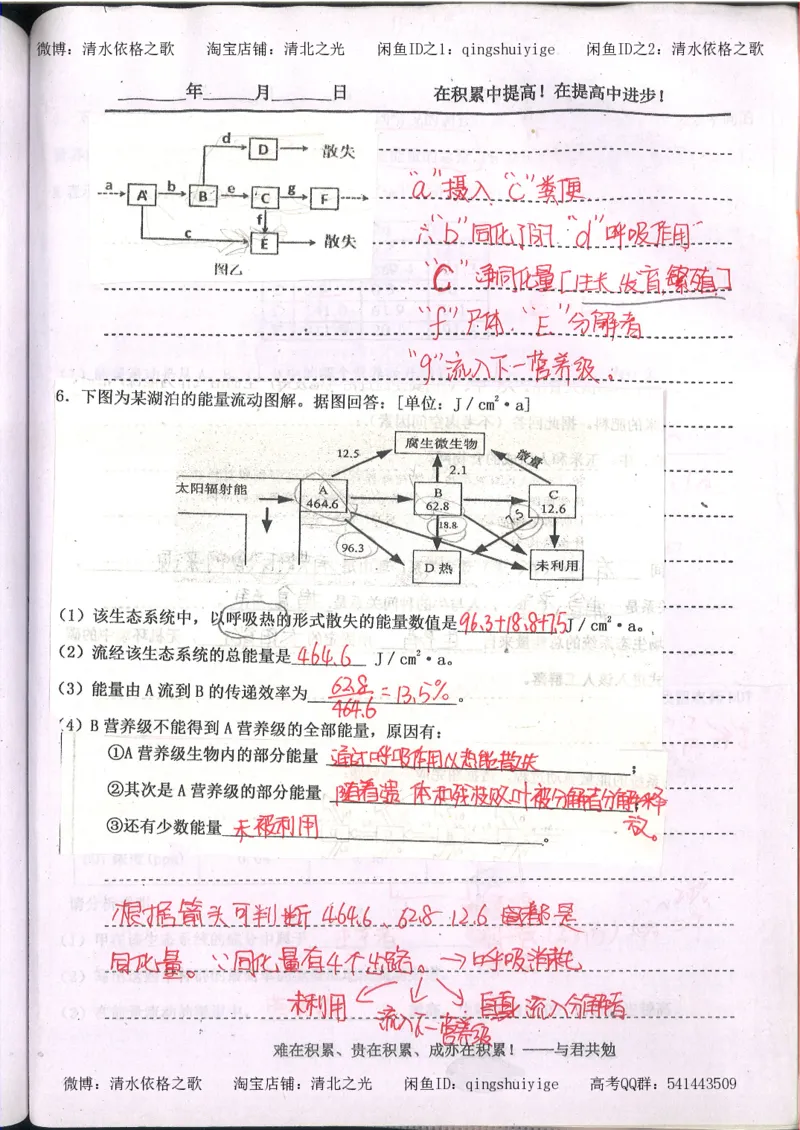 微博：清水依格之歌 淘宝店铺：清北之光 闲鱼ID之1：qingshuiyige 闲鱼ID之2：清水依格之歌
年 月 日 在积累中提高！在提高中进步！
d D 散失
a A b B e C g F
f
c E 散失
图乙
"a"摄入 "C"粪便
"b"同化 "d"呼吸作用
"C"净同化量[生长,发育,繁殖]
"f"尸体. "E"分解者
"g"流入下一营养级.
6. 下图为某湖泊的能量流动图解。据图回答：[单位：J／cm²·a]
腐生微生物
12.5 2.1 微量
太阳辐射能 A 464.6 B 62.8 C 12.6
18.8 7.5
96.3 D 热 未利用
(1) 该生态系统中，以呼吸热的形式散失的能量数值是96.3+18.8+7.5J／cm²·a。
(2) 流经该生态系统的总能量是 464.6 J／cm²·a。
(3) 能量由 A 流到 B 的传递效率为 62.8/464.6 = 13.5% 。
(4) B 营养级不能得到 A 营养级的全部能量，原因有：
①A 营养级生物内的部分能量 通过呼吸作用以热能散失 ；
②其次是 A 营养级的部分能量 随着遗体和残枝败叶被分解者分解释
放。
③还有少数能量 未被利用 。
根据箭头可判断 464.6. 62.8 12.6 都是
同化量。∵同化量有4个出路。→呼吸消耗
未利用 流入下一营养级 流入分解者
难在积累、贵在积累、成亦在积累！——与君共勉
微博：清水依格之歌 淘宝店铺：清北之光 闲鱼ID：qingshuiyige 高考QQ群：541443509